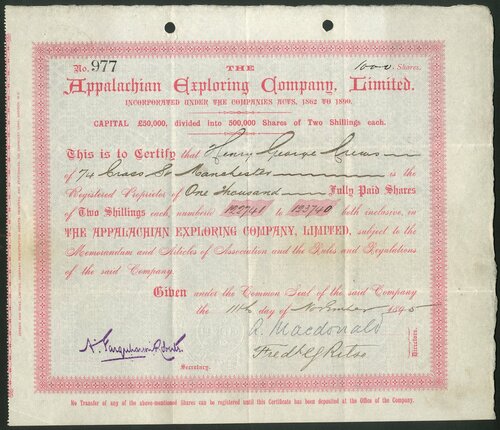 No. 977
THE
1000 Shares.
Appalachian Exploring Company, Limited.
INCORPORATED UNDER THE COMPANIES ACTS, 1862 TO 1890.
CAPITAL £50,000, divided into 500,000 Shares of Two Shillings each.
This is to Certify that Henry George Crews
of 74 Cross St Manchester is the
Registered Proprietor of One Thousand Fully Paid Shares
of Two Shillings each, numbered 122741 to 123740 both inclusive, in
THE APPALACHIAN EXPLORING COMPANY, LIMITED, subject to the
Memorandum and Articles of Association and the Rules and Regulations
of the said Company.
Given under the Common Seal of the said Company
the 11th day of November 1895
A. Macdonald
Directors.
Secretary.
No Transfer of any of the above-mentioned Shares can be registered until this Certificate has been deposited at the Office of the Company.